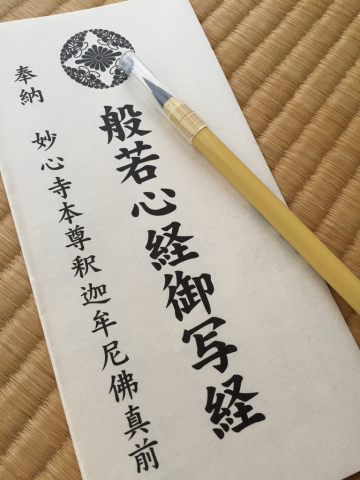 般若心経御写経
奉納
妙心寺本尊釈迦牟尼佛真前